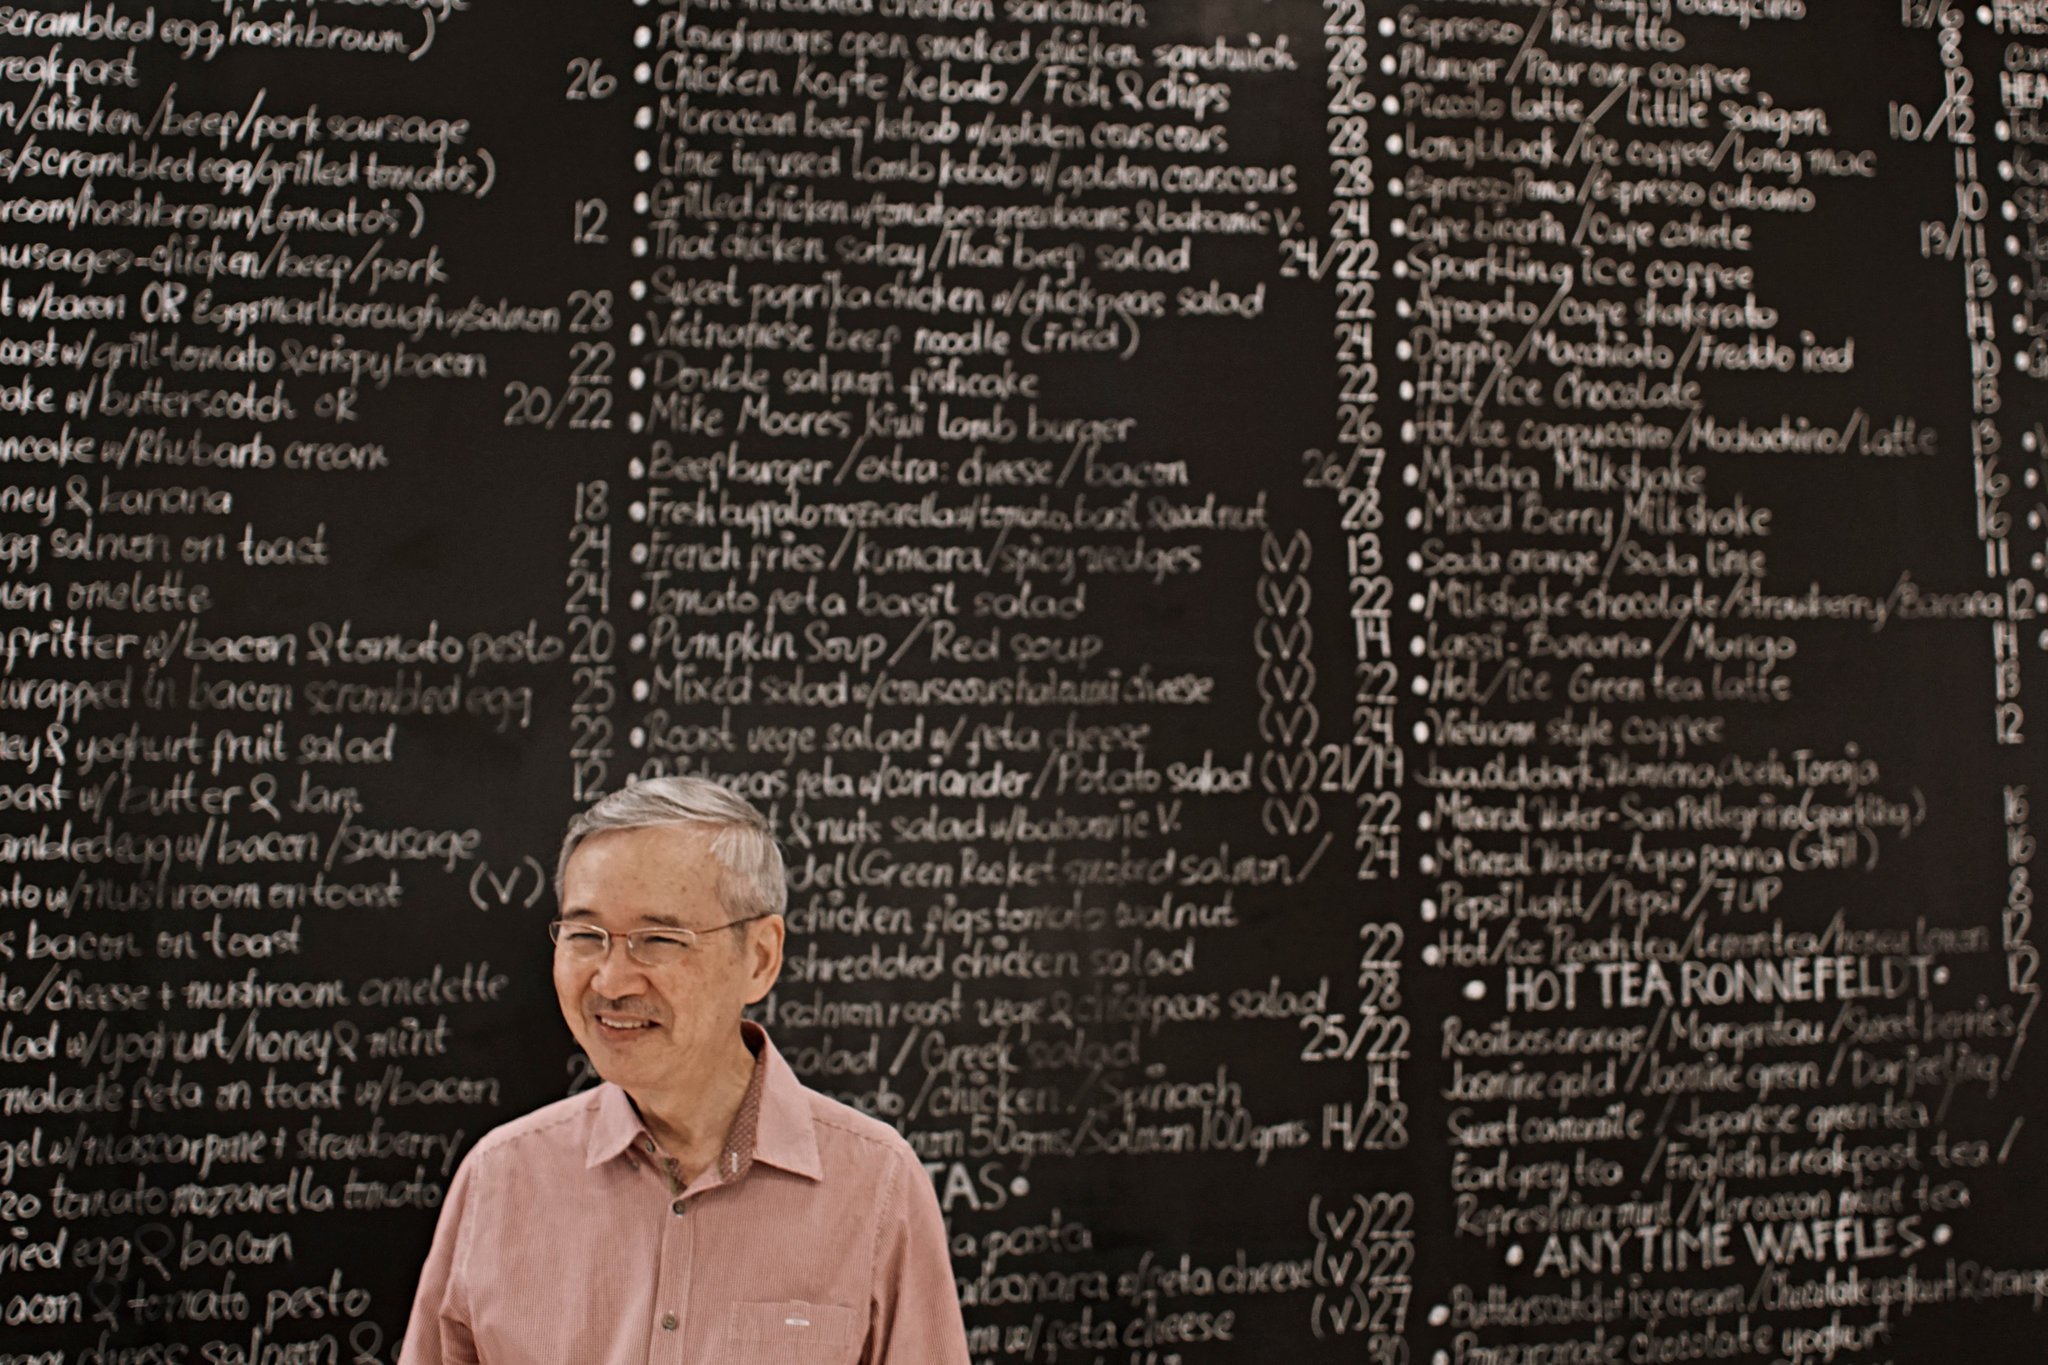 scrambled egg, hashbrown)
26
/chicken/beef/pork sausage
s/scrambled egg/grilled tomato's)
room/hashbrown/tomato's) 12
ausages-chicken/beef/pork
t w/bacon OR Eggs marlborough w/salmon 28
oast w/grill tomato & crispy bacon 22
ake w/butterscotch OR 20/22
ncake w/Rhubarb cream
ney & banana 18
gg salmon on toast 24
mon omelette 24
fritter w/bacon & tomato pesto 20
wrapped in bacon scrambled egg 25
ney & yoghurt fruit salad 22
oast w/butter & Jam 12
ambled egg w/bacon/sausage
ato w/mushroom on toast (V)
s bacon on toast
te/cheese + mushroom omelette
lad w/yoghurt/honey & mint
rmalade feta on toast w/bacon
gel w/mascarpone + strawberry
zo tomato mozzarella tomato
ried egg & bacon
acon & tomato pesto
salmon &
chicken sandwich 22
• Ploughmans open smoked chicken sandwich 28
• Chicken Kofte Kebab/Fish & Chips 26
• Moroccan beef kebab w/golden cous cous 28
• Lime infused lamb kebab w/golden couscous 28
• Grilled chicken w/tomatoes greenbeans & balsamic V. 24
• Thai chicken satay/Thai beef salad 24/22
• Sweet paprika chicken w/chickpeas salad 22
• Vietnamese beef noodle (Fried) 24
• Double salmon fishcake 22
• Mike Moore's Kiwi lamb burger 26
• Beefburger/extra: cheese/bacon 26/7
• Fresh buffalo mozzarella w/tomato, basil & walnut 28
• French fries/kumara/spicy wedges (V) 13
• Tomato feta basil salad (V) 22
• Pumpkin Soup/Red soup (V) 14
• Mixed salad w/couscous halloumi cheese (V) 22
• Roast vege salad w/feta cheese (V) 24
• Chickpeas feta w/coriander/Potato salad (V) 21/19
& nuts salad w/balsamic V. (V) 22
del (Green Rocket smoked salmon/ 24
chicken figs tomato walnut
shredded chicken salad 22
salmon roast vege & chickpeas salad 28
salad/Greek salad 25/22
/chicken/Spinach 14
50grms/Salmon 100grms 14/28
TAS•
a pasta (V) 22
arbonara w/feta cheese (V) 22
w/feta cheese (V) 27
30
13/6
• Espresso/Ristretto 8
• Plunger/Pour over coffee 12
• Piccolo latte/little saigon 10/12
• Longblack/ice coffee/long mac 11
• Espresso Roma/Espresso cubano 10
• Cafe bicerin/Cafe cohete 13/11
• Sparkling ice coffee 13
• Affogato/cafe shakerato 14
• Doppio/Macchiato/Freddo iced 10
• Hot/ice Chocolate 13
• Hot/ice cappuccino/Mochachino/latte 13
• Matcha Milkshake 16
• Mixed Berry Milkshake 16
• Soda orange/Soda lime 11
• Milkshake-chocolate/strawberry/Banana 12
• Lassi-Banana/Mango 14
• Hot/ice Green tea latte 13
• Vietnam style coffee 12
Toraja
• Mineral Water-San Pellegrino (sparkling) 16
• Mineral Water-Aqua panna (still) 16
• Pepsi Light/Pepsi/7UP 8
• Hot/ice Peach tea/lemon tea/honey lemon 12
• HOT TEA RONNEFELDT • 12
Rooibos orange/Morgentau/Sweet berries/
Jasmine gold/Jasmine green/Darjeeling/
Sweet camomile/Japanese green tea
Earl grey tea/English breakfast tea/
Refreshing mint/Moroccan mint tea
• ANYTIME WAFFLES •
• Butterscotch ice cream/Chocolate yoghurt & orange
Pomegranate chocolate yoghurt